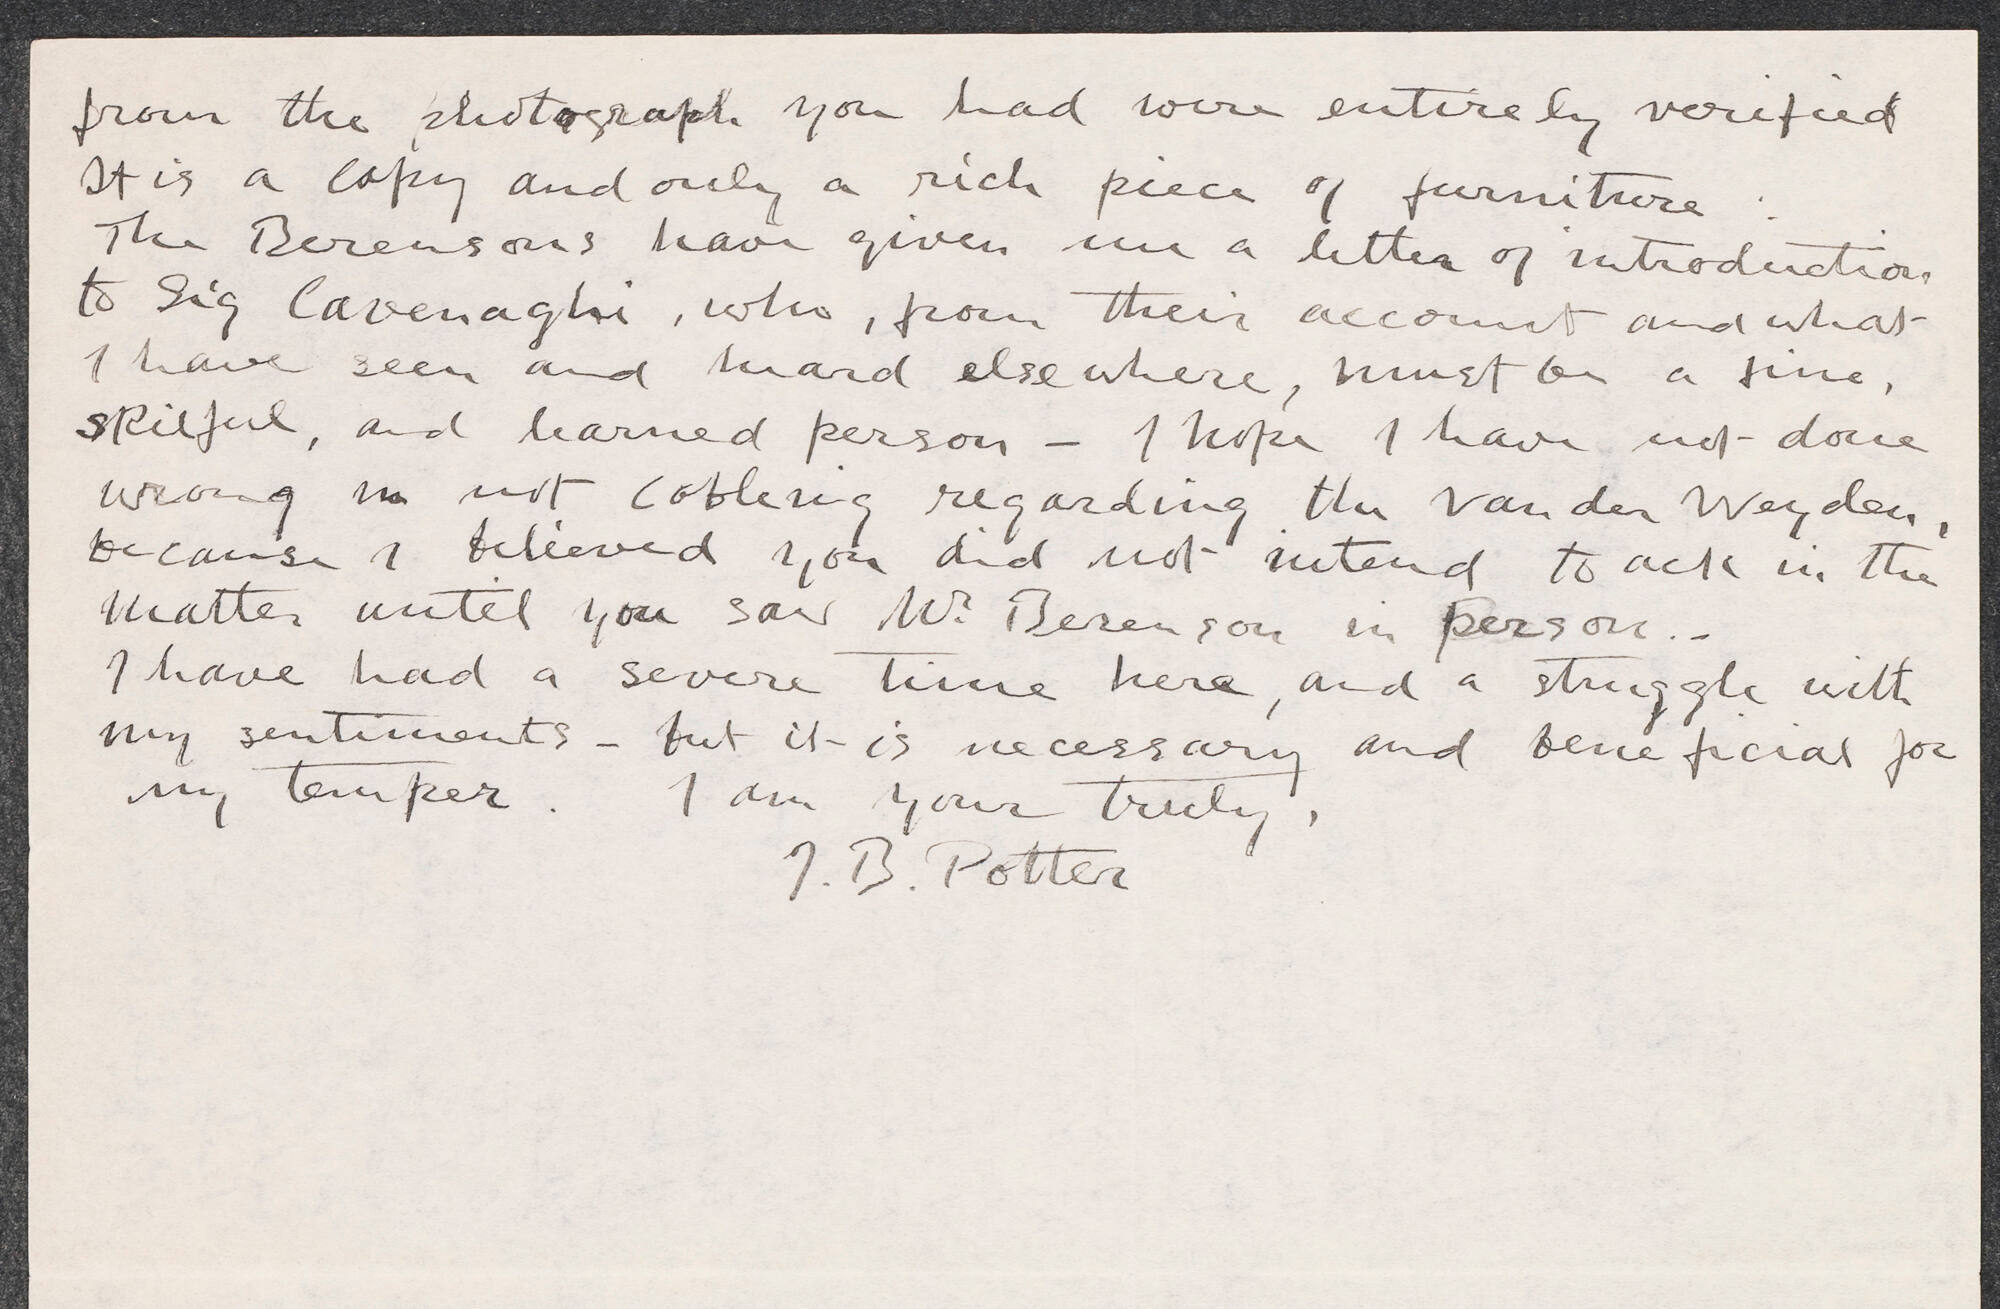 from the photograph you had were entirely verified
It is a copy and only a rich piece of furniture.
The Berensons have given me a letter of introduction
to Sig Cavenaghi, who, from their account and what
I have seen and heard elsewhere, must be a fine,
skilful, and learned person – I hope I have not done
wrong in not cabling regarding the Van der Weyden,
because I believed you did not intend to act in the
matter until you saw Mr Berenson in person. –
I have had a severe time here, and a struggle with
my sentiments – but it is necessary and beneficial for
my temper. I am your truly,
J. B. Potter